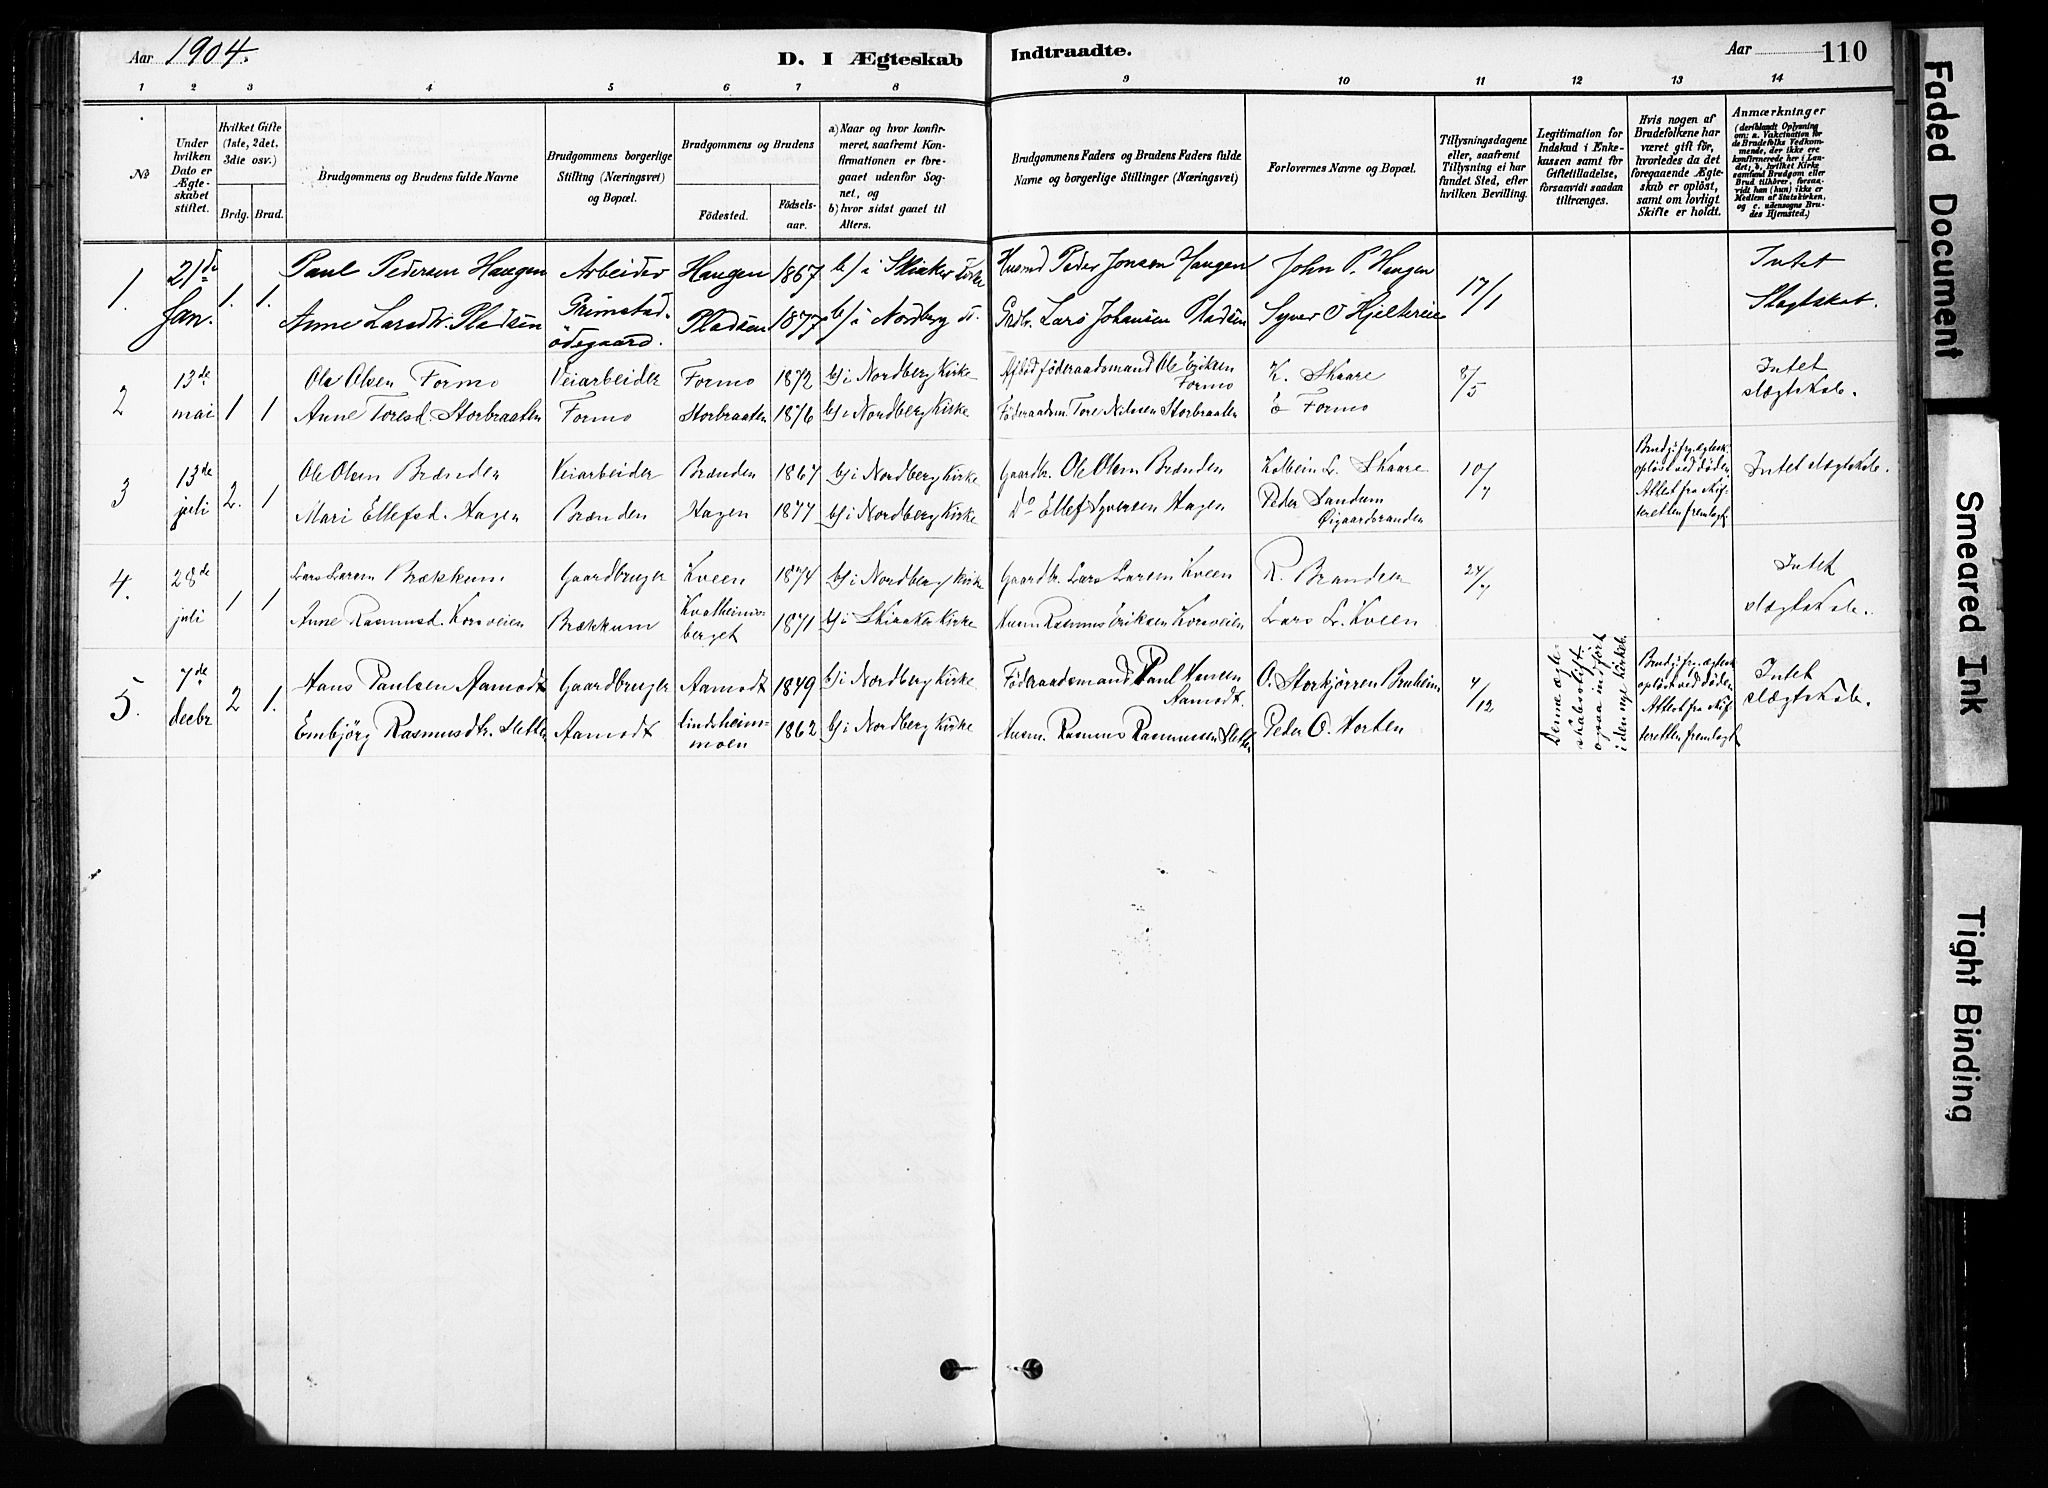 Aar 1904.
D. I Ægteskab Indtraadte.
Aar 110
1 2 3 4 5 6 7 8 9 10 11 12 13 14
No
Under hvilken Dato er Ægteskabet stiftet.
Hvilket Gifte (1ste, 2det, 3die osv.)
Brdg. Brud.
Brudgommens og Brudens fulde Navne
Brudgommens borgerlige Stilling (Næringsvei) og Bopæl.
Brudgommens og Brudens
Födested.
Födselsaar.
a) Naar og hvor konfirmeret, saafremt Konfirmationen er foregaaet udenfor Sognet, og
b) hvor sidst gaaet til Alters.
Brudgommens Faders og Brudens Faders fulde Navne og borgerlige Stillinger (Næringsvei)
Forlovernes Navne og Bopæl.
Tillysningsdagene eller, saafremt Tillysning ei har fundet Sted, efter hvilken Bevilling.
Legitimation for Indskud i Enkekassen samt for Giftetilladelse, forsaavidt saadan tiltrænges.
Hvis nogen af Brudefolkene har været gift för, hvorledes da det foregaaende Ægteskab er oplöst, samt om lovligt Skifte er holdt.
Anmærkninger (deriblandt Oplysning om: a. Vakcination for de Brudefolks Vedkommende, der ikke ere konfirmerede her i Landet; b. hvilket Kirkesamfund Brudgom eller Brud tilhörer, forsaavidt han (hun) ikke er Medlem af Statskirken, og c. udensogns Brudes Hjemsted.)
1. 21de Jan. 1. 1.
Paul Pedersen Haugen Arbeider Haugen 1867 b/ i Skiaker Kirke Husmd Peder Jonsen Haugen John P. Haugen 17/1 Intet
Anne Larsdtr. Pladsen Grimstadödegaard. Pladsen 1877 b/ i Nordberg K. Grdbr. Lars Johansen Pladsen Syver O Hjeltereie Slægtskab.
2 13de mai 1 1
Ole Olsen Formo Veiarbeider Formo 1872 b/ i Nordberg Kirke Afdöd föderaadsmand Ole Eriksen Formo K. Skaare 8/5 Intet
Anne Toresd. Storbraaten Formo Storbraaten 1876 b/ i Nordberg Kirke Föderaadsm. Tore Nilsen Storbraaten E Formo slægtskab.
3 13de juli 2. 1
Ole Olsen Brænden Veiarbeider Brænden 1867 b/ i Nordberg Kirke Gaardbr. Ole Olsen Brænden Kolbein L. Skaare 10/7 Brudgj. frg. ægtesk. oplöst ved döden Intet slægtskab.
Mari Ellefsd. Hagen Brænden Hagen 1877 b/ i Nordberg Kirke Do Ellef Syversen Hagen Peder Sandum Öigaardsranden Attest fra skifteretten fremlagt
4. 28de juli 1 1
Lars Larsen Brækkum Gaardbruger Kveen 1874 b/ i Nordberg Kirke Gaardbr. Lars Larsen Kveen R. Brandsar 24/7 Intet
Anne Rasmusd. Korsveien Brækkum Kvatheimsberget 1871 b/ i Skiaker Kirke Husm Rasmus Eriksen Korsveien Lars L. Kveen slægtskab.
5. 7de decbr 2 1.
Hans Paulsen Aamodt Gaardbruger Aamodt 1849 b/ i Nordberg Kirke Föderaadsmand Paul Hansen Aamodt. O. Storkjörren Bruheim 4/12 Brudgj. frg. ægtesk. oplöst ved döden Intet
Embjörg Rasmusdtr. Sletten Aamodt Lindsheimsmoen 1862 b/ i Nordberg Kirke Husm. Rasmus Rasmussen Sletten Peder O. Horten Attest fra skifteretten fremlagt slægtskab.
Denne ægteskabsstift. ogsaa indfört i den nye Kirkeb.
Faded Document
Smeared Ink
Tight Binding